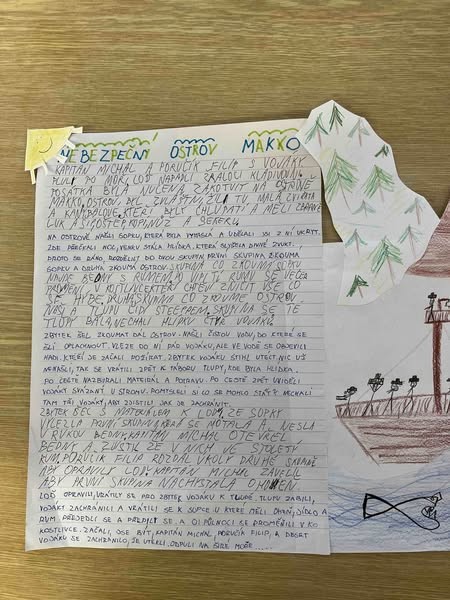 NEBEZPEČNÝ OSTROV MAKKO
KAPITÁN MICHAL A PORUČÍK FILIP S VOJÁKY
PLULI PO MOŘI, LOĎ NAPADL ŽRALOCI KLADIVOUNI.
POSÁTKA BYLA NUCENA ZAKOTVIT NA OSTROVĚ
MAKKO. OSTROV BYL ZVLÁŠTNÍ, ŽILI TU MALÁ ZVÍŘATA
A KANIBALOVÉ, KTEŘÍ BYLI CHLUPATÍ A MĚLI ZBRANĚ
LUK A ŠÍP, OŠTĚP A SEKERU.
NA OSTROVĚ NAŠLI SOPKU, KTERÁ BYLA VYHASLÁ A UDĚLALI SI Z NÍ ÚKRYT,
ZDE PŘEČKALI NOC, VENKU STÁLA HLÍDKA, KTERÁ SLYŠELA DIVNÉ ZVUKY.
PROTO SE RÁNO ROZDĚLILI DO DVOU SKUPIN. PRVNÍ SKUPINA ZKOUMÁ
SOPKU A DRUHÁ ZKOUMÁ OSTROV. SKUPINA CO ZKOUMÁ SOPKU
NAJDE BEDNY S RUMEM
CHTĚJÍ ZNIČIT VŠE CO
SE HÝBE. DRUHÁ SKUPINA CO ZKOUMÁ OSTROV,
NAŠLI A TLUPU LIDÍ SKUPINA SE TÉ
TLUPY BÁLA, NECHALI HLÍDKU ČTYŘ VOJÁKŮ.
ZBYTEK ŠEL ZKOUMAT DÁL OSTROV. NAŠLI ČISTOU VODU, DO KTERÉ SE
ŠLI OPLÁCHNOUT. VLEZE DO NÍ PÁR VOJÁKŮ, ALE VE VODĚ SE OBJEVILI
HADI, KTEŘÍ JE ZAČALI POŽÍRAT. ZBYTEK VOJÁKŮ STIHL UTÉCT, NIC UŽ
NENAŠLI, TAK SE VRÁTILI ZPĚT K TÁBORU TLUPY, KDE BYLA HLÍDKA.
PO CESTĚ NAZBÍRALI MATERIÁL A POTRAVU. PO CESTĚ ZPĚT UVIDĚLI
VOJÁKY SVÁZANÝ U STROMU. POMYSLELI SI CO SE MOHLO STÁT? NECHALI
TAM TŘI VOJÁKY, ABY ZJISTILI, JAK JE ZACHRÁNIT.
ZBYTEK BĚŽÍ S MATERIÁLEM K LODI, ZE SOPKY
VYLEZLA PRVNÍ SKUPINA, KTERÁ SE MOTALA A NESLA
V RUKOU BEDNY. KAPITÁN MICHAL OTEVŘEL
BEDNY A ZJISTIL ŽE
RUM. PORUČÍK FILIP ROZDAL ÚKOLY DRUHÉ SKUPINĚ
ABY OPRAVILY LOĎ. KAPITÁN MICHAL ZAVELIL
ABY PRVNÍ SKUPINA NACHYSTALA OHEŇ.
LOĎ OPRAVILI, VRÁTILY SE PRO ZBYTEK VOJÁKŮ K TLUPĚ, TLUPU ZABILI,
VOJÁKY ZACHRÁNILI A VRÁTILI SE K SOPCE U KTERÉ MĚLI OHEŇ, JÍDLO A
RUM. PŘEJEDLI SE A PŘEPILI SE. A O PŮLNOCI SE PROMĚNILI V KO
KOSTLIVCE. ZAČALI SE BÍT, KAPITÁN MICHAL, PORUČÍK FILIP, A DESET
VOJÁKŮ SE ZACHRÁNILO, ŽE UTEKLI. ODPLULI NA ŠIRÉ MOŘE ...